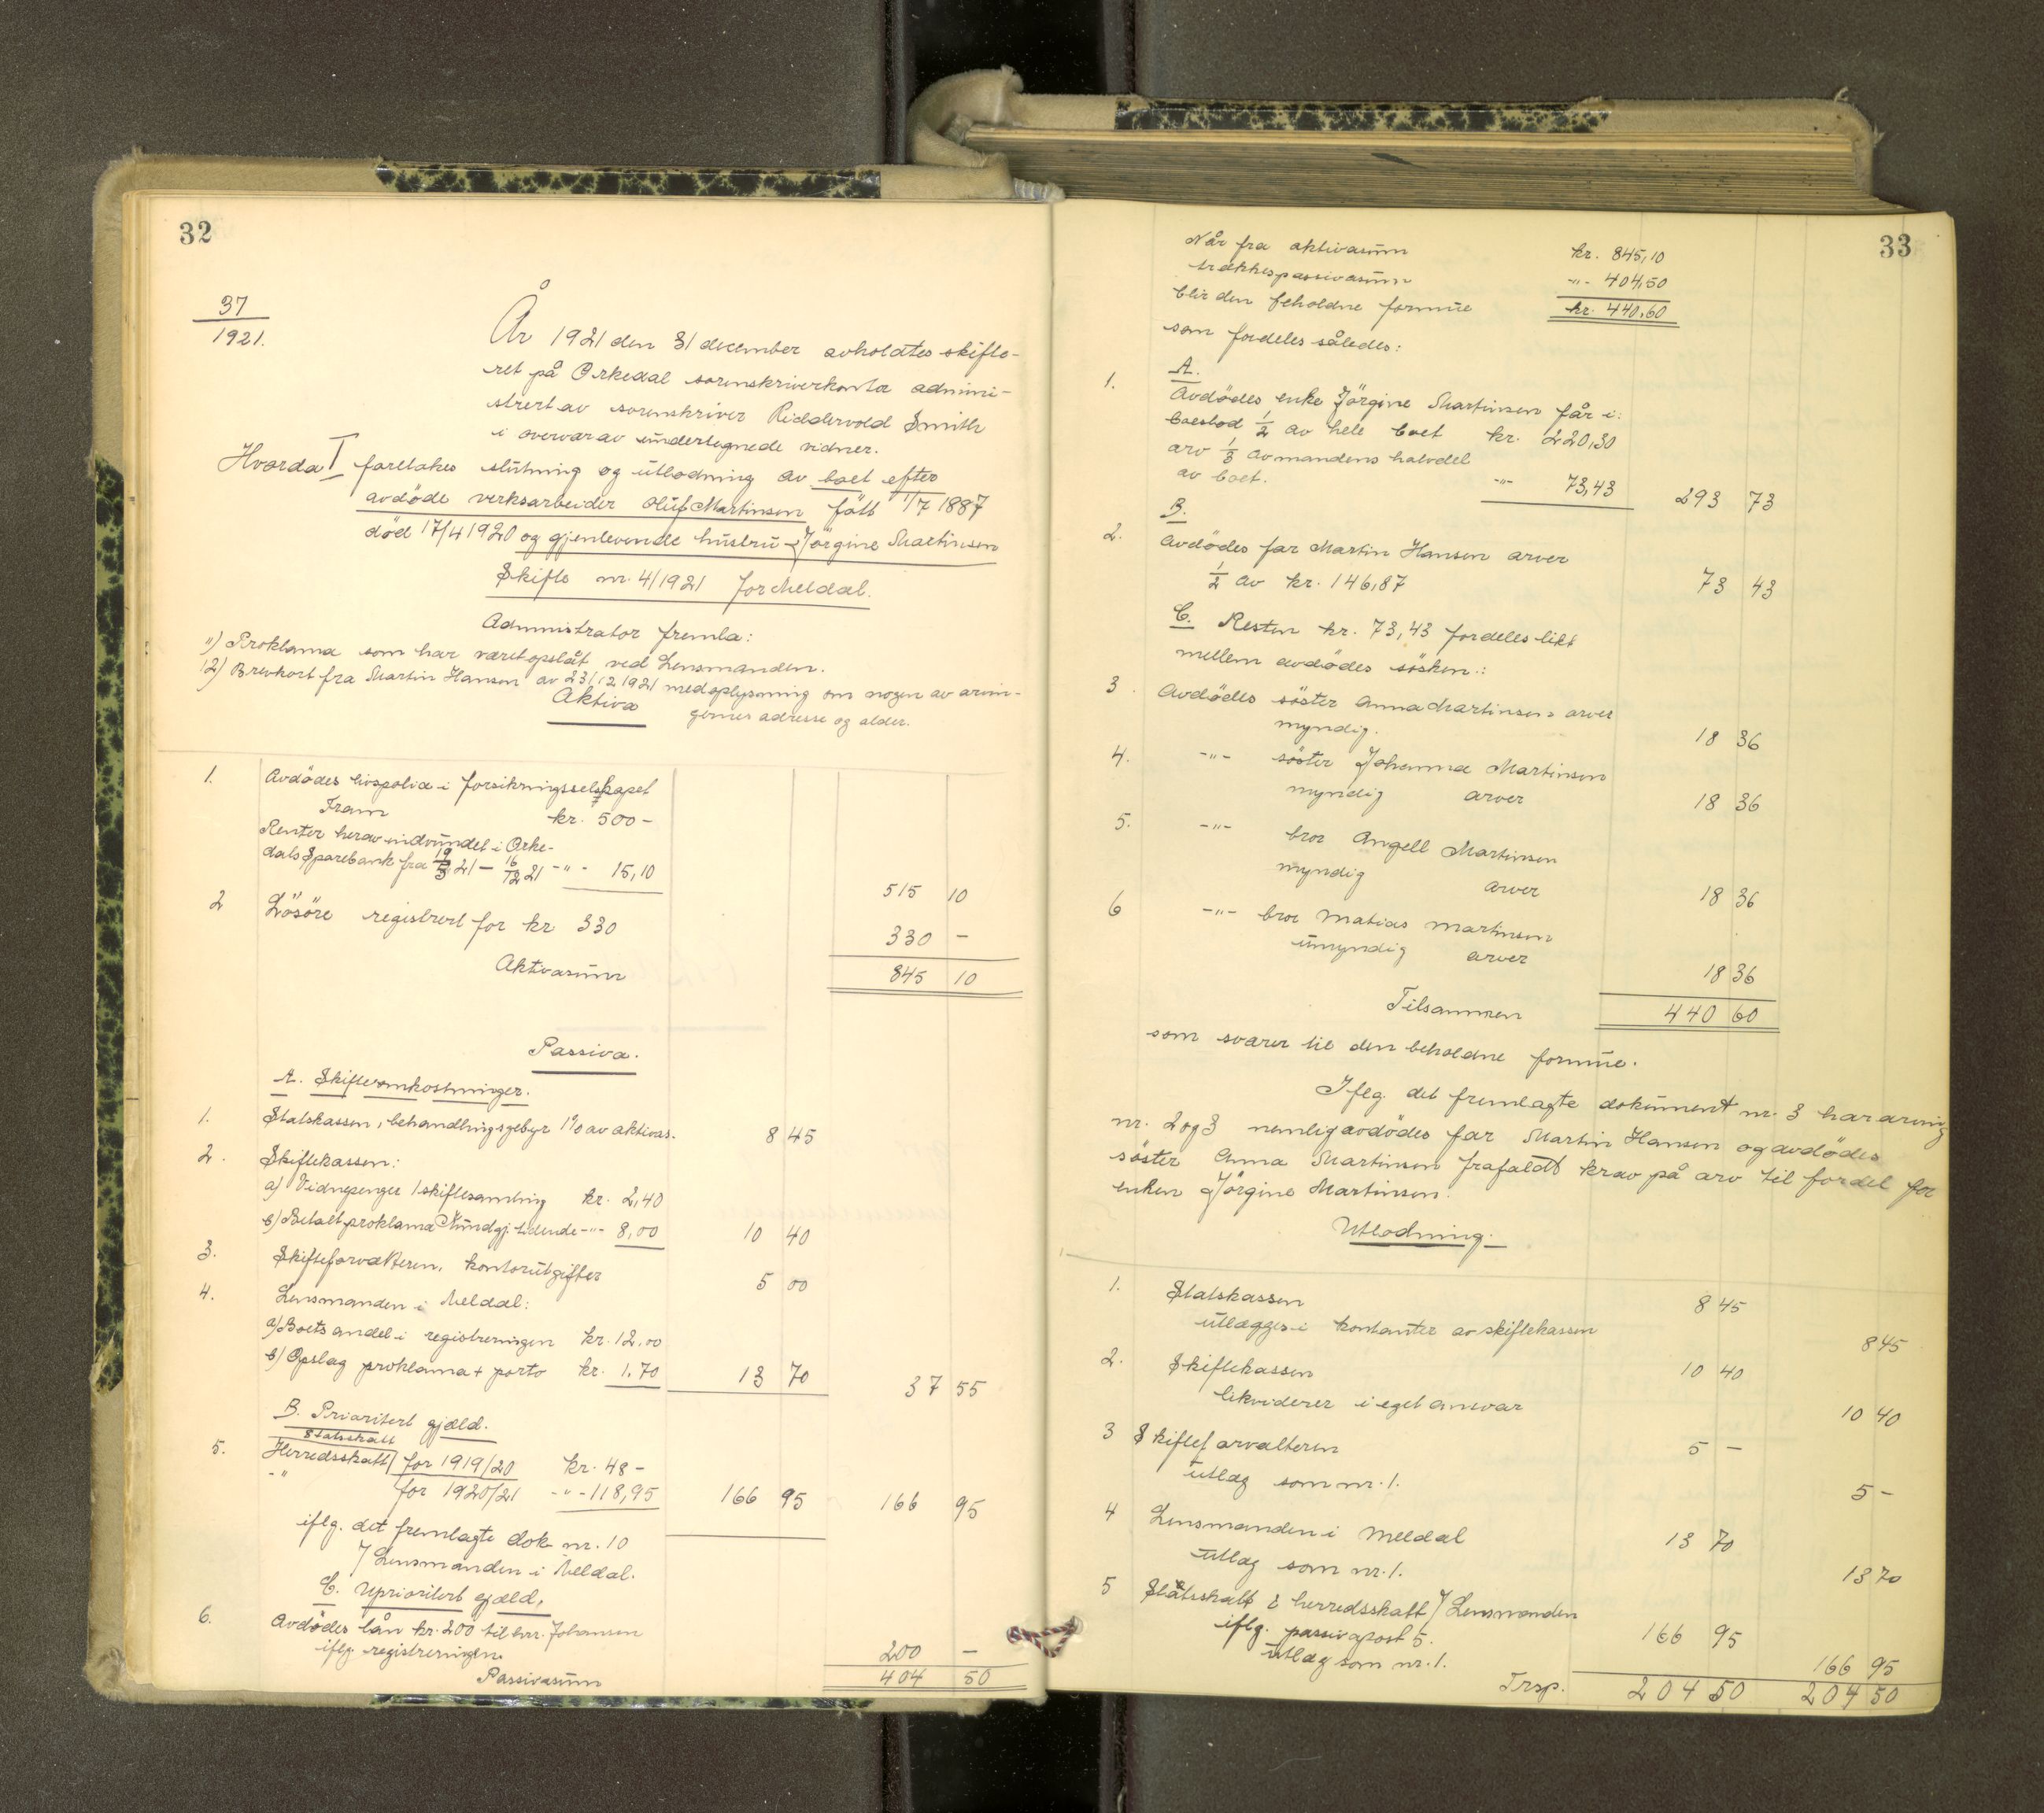 32
37
1921.
År 1921 den 31 december avholdtes skifte-
ret på Orkedal sorenskriverkontor admini-
strert av sorenskriver Riddervold Smith
i overvær av undertegnede vidner.
Hvorda I foretokes slutning og utlodning av boet efter
avdöde verksarbeider Oluf Martinsen fött 1/7 1887
död 17/4 1920 og gjenlevende hustru Jörgine Martinsen
Skifte nr. 4/1921 for Meldal.
Administrator fremla:
11) Proklama som har været opslåt ved Lensmanden.
12) Brevkort fra Martin Hansen av 23/12 1921 med oplysning om nogen av arvin-
gernes adresse og alder.
Aktiva
1. Avdödes livspolice i forsikringsselskapet
Fram kr. 500 -
Renter herav indvundet i Orke-
dals Sparebank fra 19/3 21 - 16/12 21 -"- 15,10
515 10
2 Lösöre registrert for kr 330
330 -
Aktivasum 845 10
Passiva.
A. Skifteomkostninger.
1. Statskassen, behandlingsgebyr 1% av aktivas. 8 45
2. Skiftekassen:
a) Vidnepenger 1 skiftesamling kr. 2,40
b) Betalt proklama Kundgj. tidende -"- 8,00 10 40
3. Skifteforvalteren, kontorutgifter 5 00
4. Lensmanden i Meldal:
a) Boets andel i registreringen kr. 12.00
b) Opslag proklama + porto kr. 1.70 13 70 37 55
B. Prioritert gjæld.
Statsskatt
5. Herredsskatt for 1919/20 kr. 48 -
-"- for 1920/21 -"- 118,95 166 95 166 95
iflg. det fremlagte dok nr. 10
/ Lensmanden i Meldal.
C. Uprioritert gjæld.
6. Avdödes lån kr. 200 til hr. Johansen
iflg registreringen. 200 -
Passivasum 404 50
33
Når fra aktivasum kr. 845,10
trækkes passivasum -"- 404,50
blir den beholdne formue kr. 440,60
som fordeles således:
A.
1. Avdödes enke Jörgine Martinsen får i:
boeslod 1/2 av hele boet kr. 220,30
arv 1/3 av mandens halvdel
av boet. -"- 73,43 293 73
B.
2. Avdödes far Martin Hansen arver
1/2 av kr. 146,87 73 43
C. Resten kr. 73,43 fordeles likt
mellem avdödes sösken:
3. Avdödes söster Anna Martinsen arver
myndig. 18 36
4. -"- söster Johanna Martinsen
myndig arver 18 36
5. -"- bror Angell Martinsen
myndig arver 18 36
6 -"- bror Matias Martinsen
umyndig arver 18 36
Tilsammen 440 60
som svarer til den beholdne formue.
Iflg. det fremlagte dokument nr. 3 har arving
nr. 2 og 3 nemlig avdödes far Martin Hansen og avdödes
söster Anna Martinsen frafaldt krav på arv til fordel for
enken Jörgine Martinsen.
Utlodning.
1. Statskassen 8 45
utlægges i kontanter av skiftekassen 8 45
2. Skiftekassen 10 40
likviderer i eget ansvar 10 40
3 Skifteforvalteren 5 -
utlæg som nr. 1. 5 -
4 Lensmanden i Meldal 13 70
utlæg som nr. 1. 13 70
5 Statsskatt & herredsskatt / Lensmanden
iflg. passivapost 5. 166 95
utlæg som nr. 1. 166 95
Trsp. 204 50 204 50